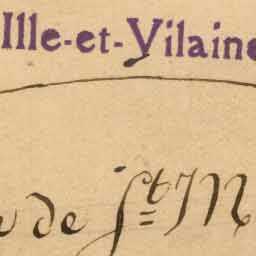 Ille-et-Vilaine
de St M